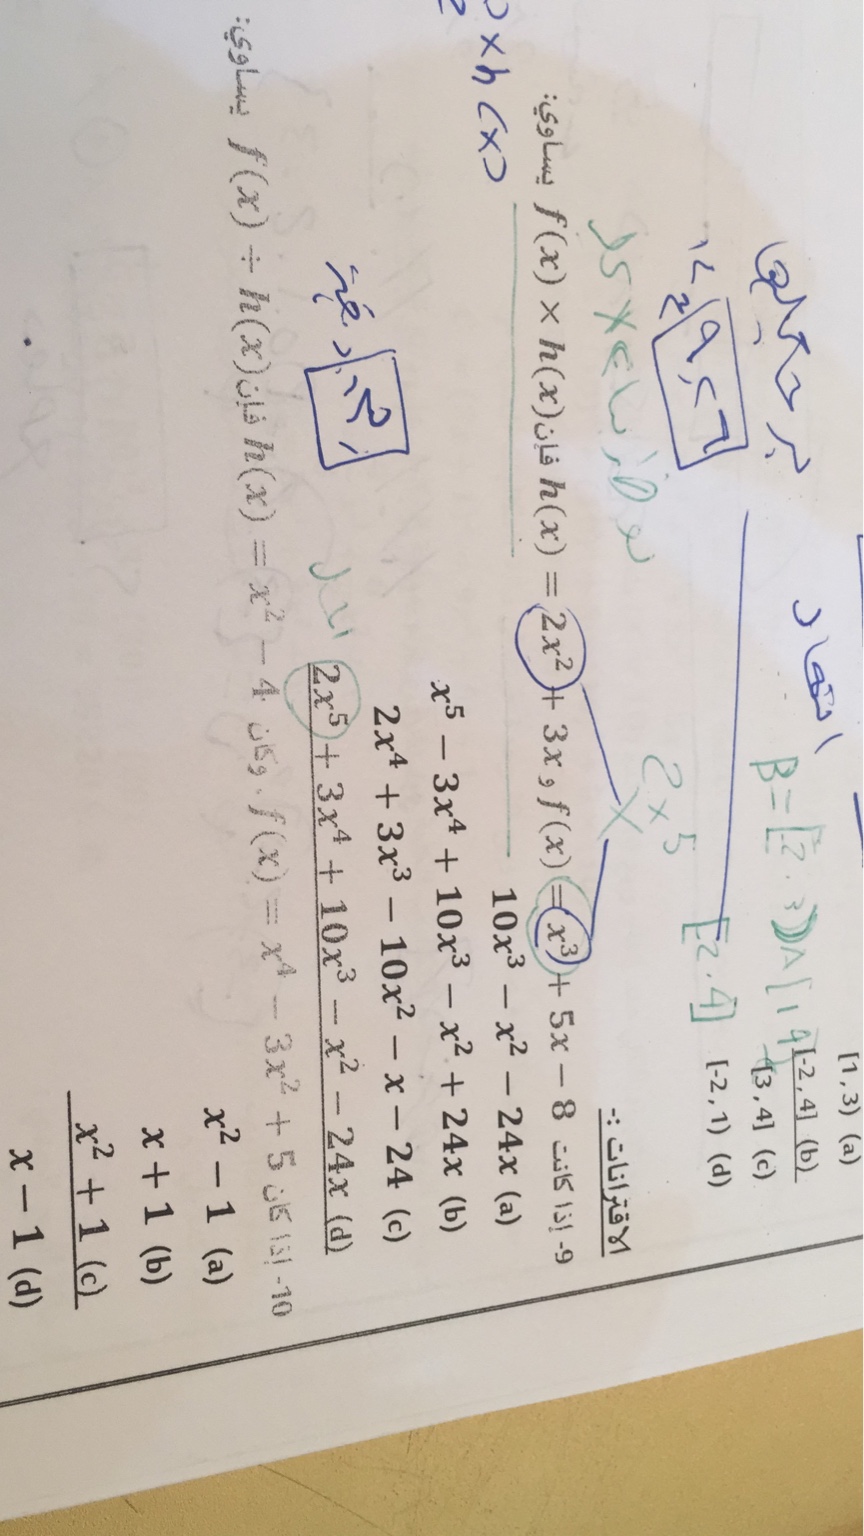 [1, 3) (a)
[-2, 4] (b)
[3, 4] (c)
[-2, 1) (d)
B = [2, 3) A [1 4
[2, 4]
2x5
الاقترانات :-
9- إذا كانت f(x) = x³ + 5x − 8 و h(x) = 2x² + 3x فإن f(x) × h(x) يساوي:
× h(x)
10x³ − x² − 24x (a)
x⁵ − 3x⁴ + 10x³ − x² + 24x (b)
2x⁴ + 3x³ − 10x² − x − 24 (c)
2x⁵ + 3x⁴ + 10x³ − x² − 24x (d)
10- إذا كان f(x) = x⁴ − 3x² + 5 ، وكان h(x) = x² − 4 فإن f(x) ÷ h(x) يساوي:
x² − 1 (a)
x + 1 (b)
x² + 1 (c)
x − 1 (d)